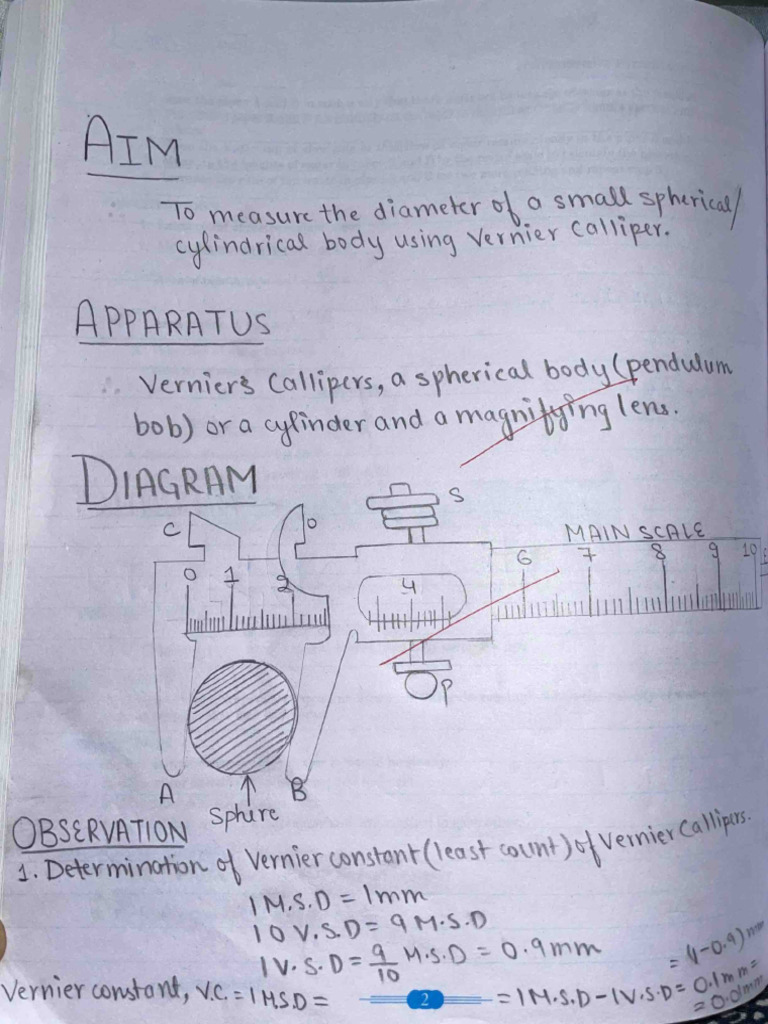 AIM
To measure the diameter of a small spherical/
cylindrical body using Vernier Calliper.
APPARATUS
Vernier's Callipers, a spherical body (pendulum
bob) or a cylinder and a magnifying lens.
DIAGRAM
C
D
S
MAIN SCALE
0 1 2 4 6 7 8 9 10
P
A
B
Sphere
OBSERVATION
1. Determination of Vernier constant (least count) of Vernier Callipers.
1 M.S.D = 1mm
10 V.S.D = 9 M.S.D
1 V.S.D = 9/10 M.S.D = 0.9mm
Vernier constant, V.C. = 1 M.S.D = = 1 M.S.D - 1 V.S.D = (1-0.9) mm
= 0.1mm =
= 0.01mm
2